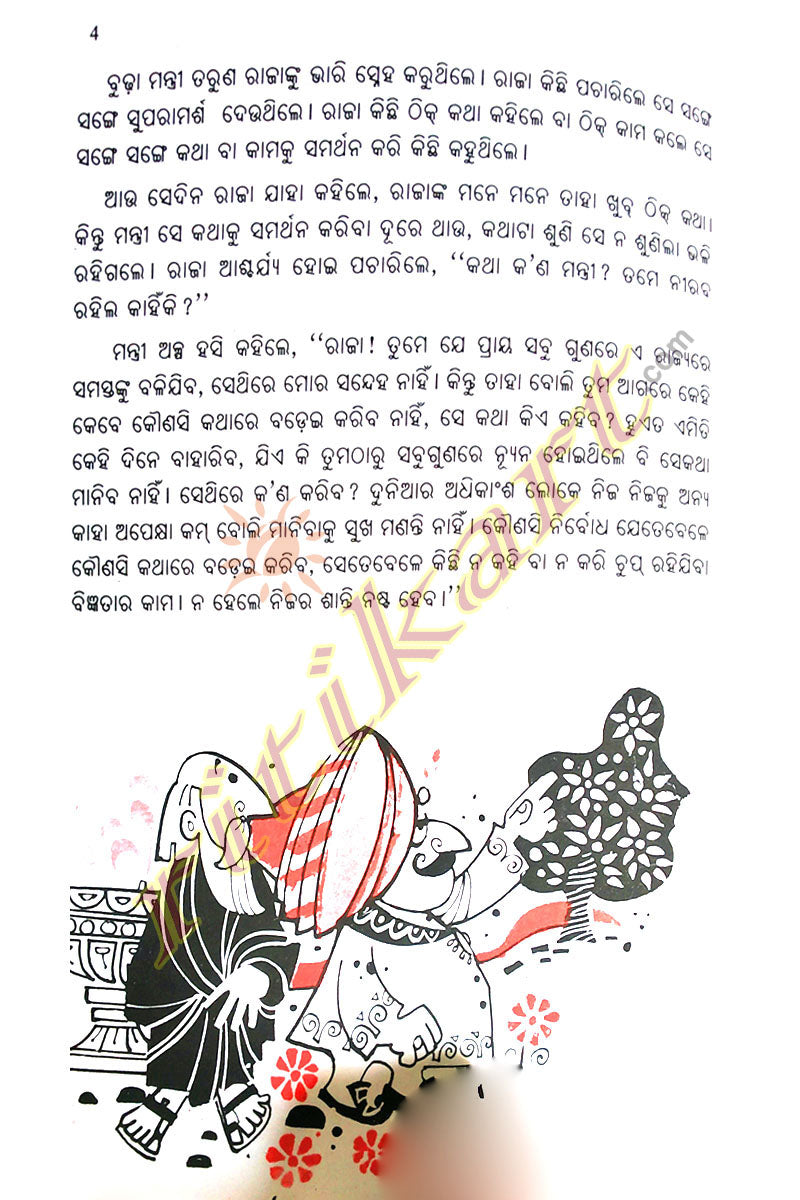 4
ବୁଢ଼ା ମନ୍ତ୍ରୀ ତରୁଣ ରାଜାଙ୍କୁ ଭାରି ସ୍ନେହ କରୁଥିଲେ। ରାଜା କିଛି ପଚାରିଲେ ସେ ସଙ୍ଗେ
ସଙ୍ଗେ ସୁପରାମର୍ଶ ଦେଉଥିଲେ। ରାଜା କିଛି ଠିକ୍ କଥା କହିଲେ ବା ଠିକ୍ କାମ କଲେ ସେ
ସଙ୍ଗେ ସଙ୍ଗେ କଥା ବା କାମକୁ ସମର୍ଥନ କରି କିଛି କହୁଥିଲେ।
ଆଉ ସେଦିନ ରାଜା ଯାହା କହିଲେ, ରାଜାଙ୍କ ମନେ ମନେ ତାହା ଖୁବ୍ ଠିକ୍ କଥା।
କିନ୍ତୁ ମନ୍ତ୍ରୀ ସେ କଥାକୁ ସମର୍ଥନ କରିବା ଦୂରେ ଥାଉ, କଥାଟା ଶୁଣି ସେ ନ ଶୁଣିଲା ଭଳି
ରହିଗଲେ। ରାଜା ଆଶ୍ଚର୍ଯ୍ୟ ହୋଇ ପଚାରିଲେ, “କଥା କ'ଣ ମନ୍ତ୍ରୀ? ତମେ ନୀରବ
ରହିଲ କାହିଁକି?”
ମନ୍ତ୍ରୀ ଅଳ୍ପ ହସି କହିଲେ, “ରାଜା! ତୁମେ ଯେ ପ୍ରାୟ ସବୁ ଗୁଣରେ ଏ ରାଜ୍ୟରେ
ସମସ୍ତଙ୍କୁ ବଳିଯିବ, ସେଥିରେ ମୋର ସନ୍ଦେହ ନାହିଁ। କିନ୍ତୁ ତାହା ବୋଲି ତୁମ ଆଗରେ କେହି
କେବେ କୌଣସି କଥାରେ ବଡ଼େଇ କରିବ ନାହିଁ, ସେ କଥା କିଏ କହିବ? ହୁଏତ ଏମିତି
କେହି ଦିନେ ବାହାରିବ, ଯିଏ କି ତୁମଠାରୁ ସବୁଗୁଣରେ ନ୍ୟୂନ ହୋଇଥିଲେ ବି ସେକଥା
ମାନିବ ନାହିଁ। ସେଥିରେ କ'ଣ କରିବ? ଦୁନିଆର ଅଧିକାଂଶ ଲୋକେ ନିଜ ନିଜକୁ ଅନ୍ୟ
କାହା ଅପେକ୍ଷା କମ୍ ବୋଲି ମାନିବାକୁ ସୁଖ ମଣନ୍ତି ନାହିଁ। କୌଣସି ନିର୍ବୋଧ ଯେତେବେଳେ
କୌଣସି କଥାରେ ବଡ଼େଇ କରିବ, ସେତେବେଳେ କିଛି ନ କହି ବା ନ କରି ଚୁପ୍ ରହିଯିବା
ବିଜ୍ଞତାର କାମ। ନ ହେଲେ ନିଜର ଶାନ୍ତି ନଷ୍ଟ ହେବ।”
ritikart.com